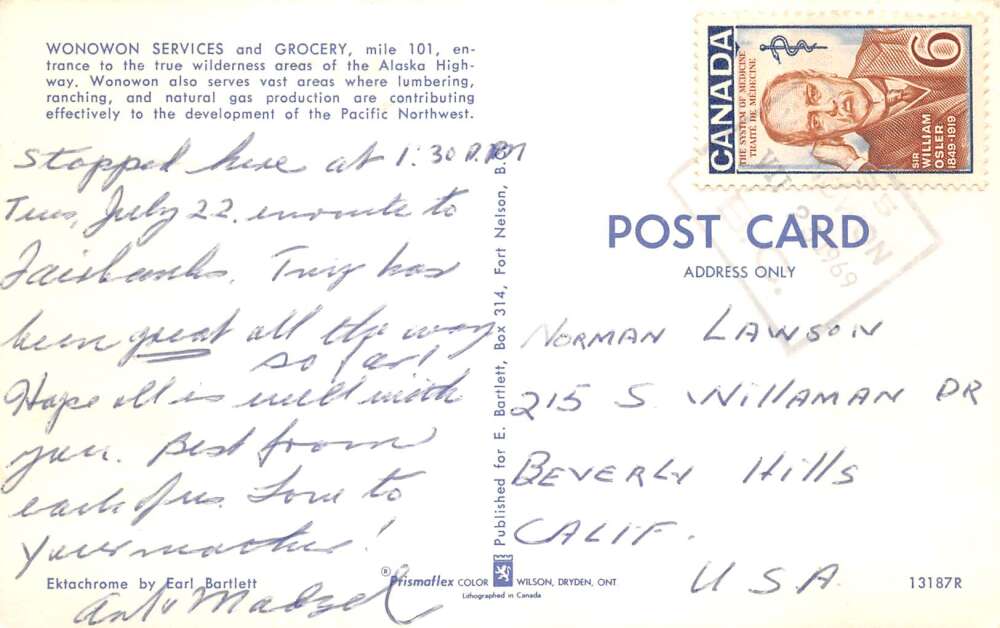 WONOWON SERVICES and GROCERY, mile 101, en-
trance to the true wilderness areas of the Alaska High-
way. Wonowon also serves vast areas where lumbering,
ranching, and natural gas production are contributing
effectively to the development of the Pacific Northwest.
Stopped here at 1:30 P.M
Tues, July 22. enroute to
Fairbanks. Trip has
been great all the way
so far!
Hope all is well with
you. Best from
each of us. Love to
your mother!
Ektachrome by Earl Bartlett
Published for E. Bartlett, Box 314, Fort Nelson, B.C.
®Prismaflex COLOR WILSON, DRYDEN, ONT.
Lithographed in Canada
CANADA
THE SYSTEM OF MEDICINE
TRAITÉ DE MÉDECINE
6
SIR
WILLIAM
OSLER
1849-1919
1969
B.C.
POST CARD
ADDRESS ONLY
NORMAN LAWSON
215 S. WillAMAN DR
BEVERLY Hills
CALIF.
USA
13187R